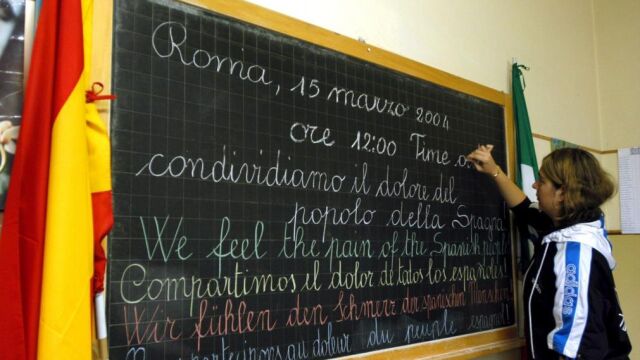 Roma, 15 marzo 2004
ore 12:00 Time
condividiamo il dolore del
popolo della Spagna
We feel the pain of the Spanish people
Compartimos il dolor de tatos los españoles!
Wir fühlen den Schmerz der spanischen Menschen
au doleur du peuple espagnol
adidas